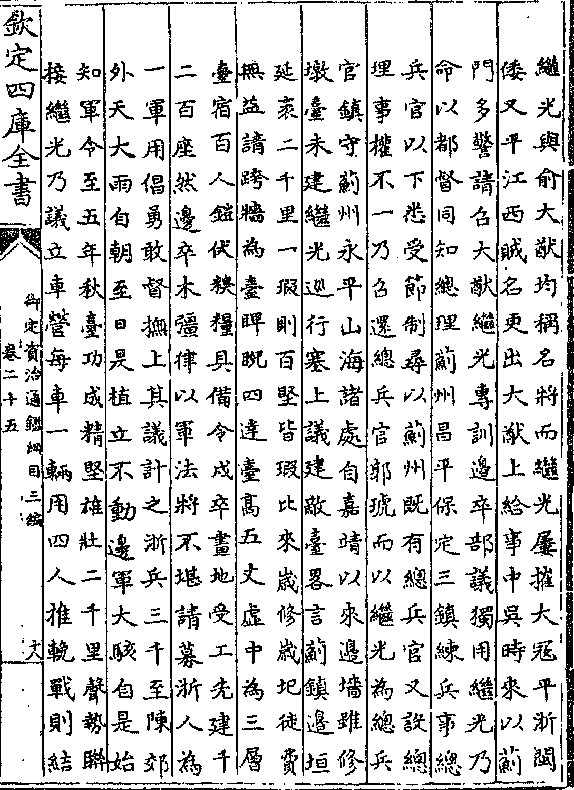 繼光與俞大猷均稱名將而繼光屢摧大冦平浙閩
倭又平江西賊名更出大猷上給事中吳時來以薊
門多警請召大猷繼光專訓邊卒部議獨用繼光乃
命以都督同知總理薊州昌平保定三鎮練兵事總
兵官以下悉受節制尋以薊州既有總兵官又設總
理事權不一乃召還總兵官郭琥而以繼光為總兵
官鎮守薊州永平山海諸處自嘉靖以來邊墻雖修
墩臺未建繼光巡行塞上議建敵臺畧言薊鎮邊垣
延袤二千里一瑕則百堅皆瑕比來歳修歳圯徒費
無益請跨墻為臺睥睨四達臺髙五丈虛中為三層
臺宿百人鎧仗糗糧具備令戍卒畫地受工先建千
二百座然邊卒木彊律以軍法將不堪請募浙人為
一軍用倡勇敢督撫上其議許之浙兵三千至陳郊
外天大雨自朝至日昃植立不動邊軍大駭自是始
知軍令至五年秋臺功成精堅雄壯二千里聲勢聯
接繼光乃議立車營每車一輛用四人推輓戰則結
欽定四庫全書
御定資治通鑑綱目三編
卷二十五